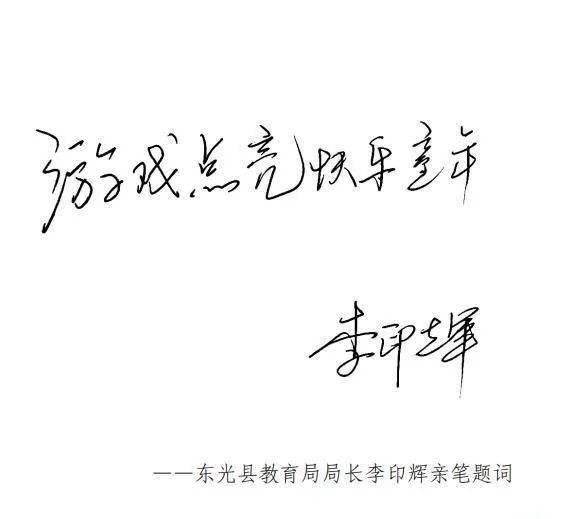 游戏点亮快乐童年
李印辉
——东光县教育局局长李印辉亲笔题词